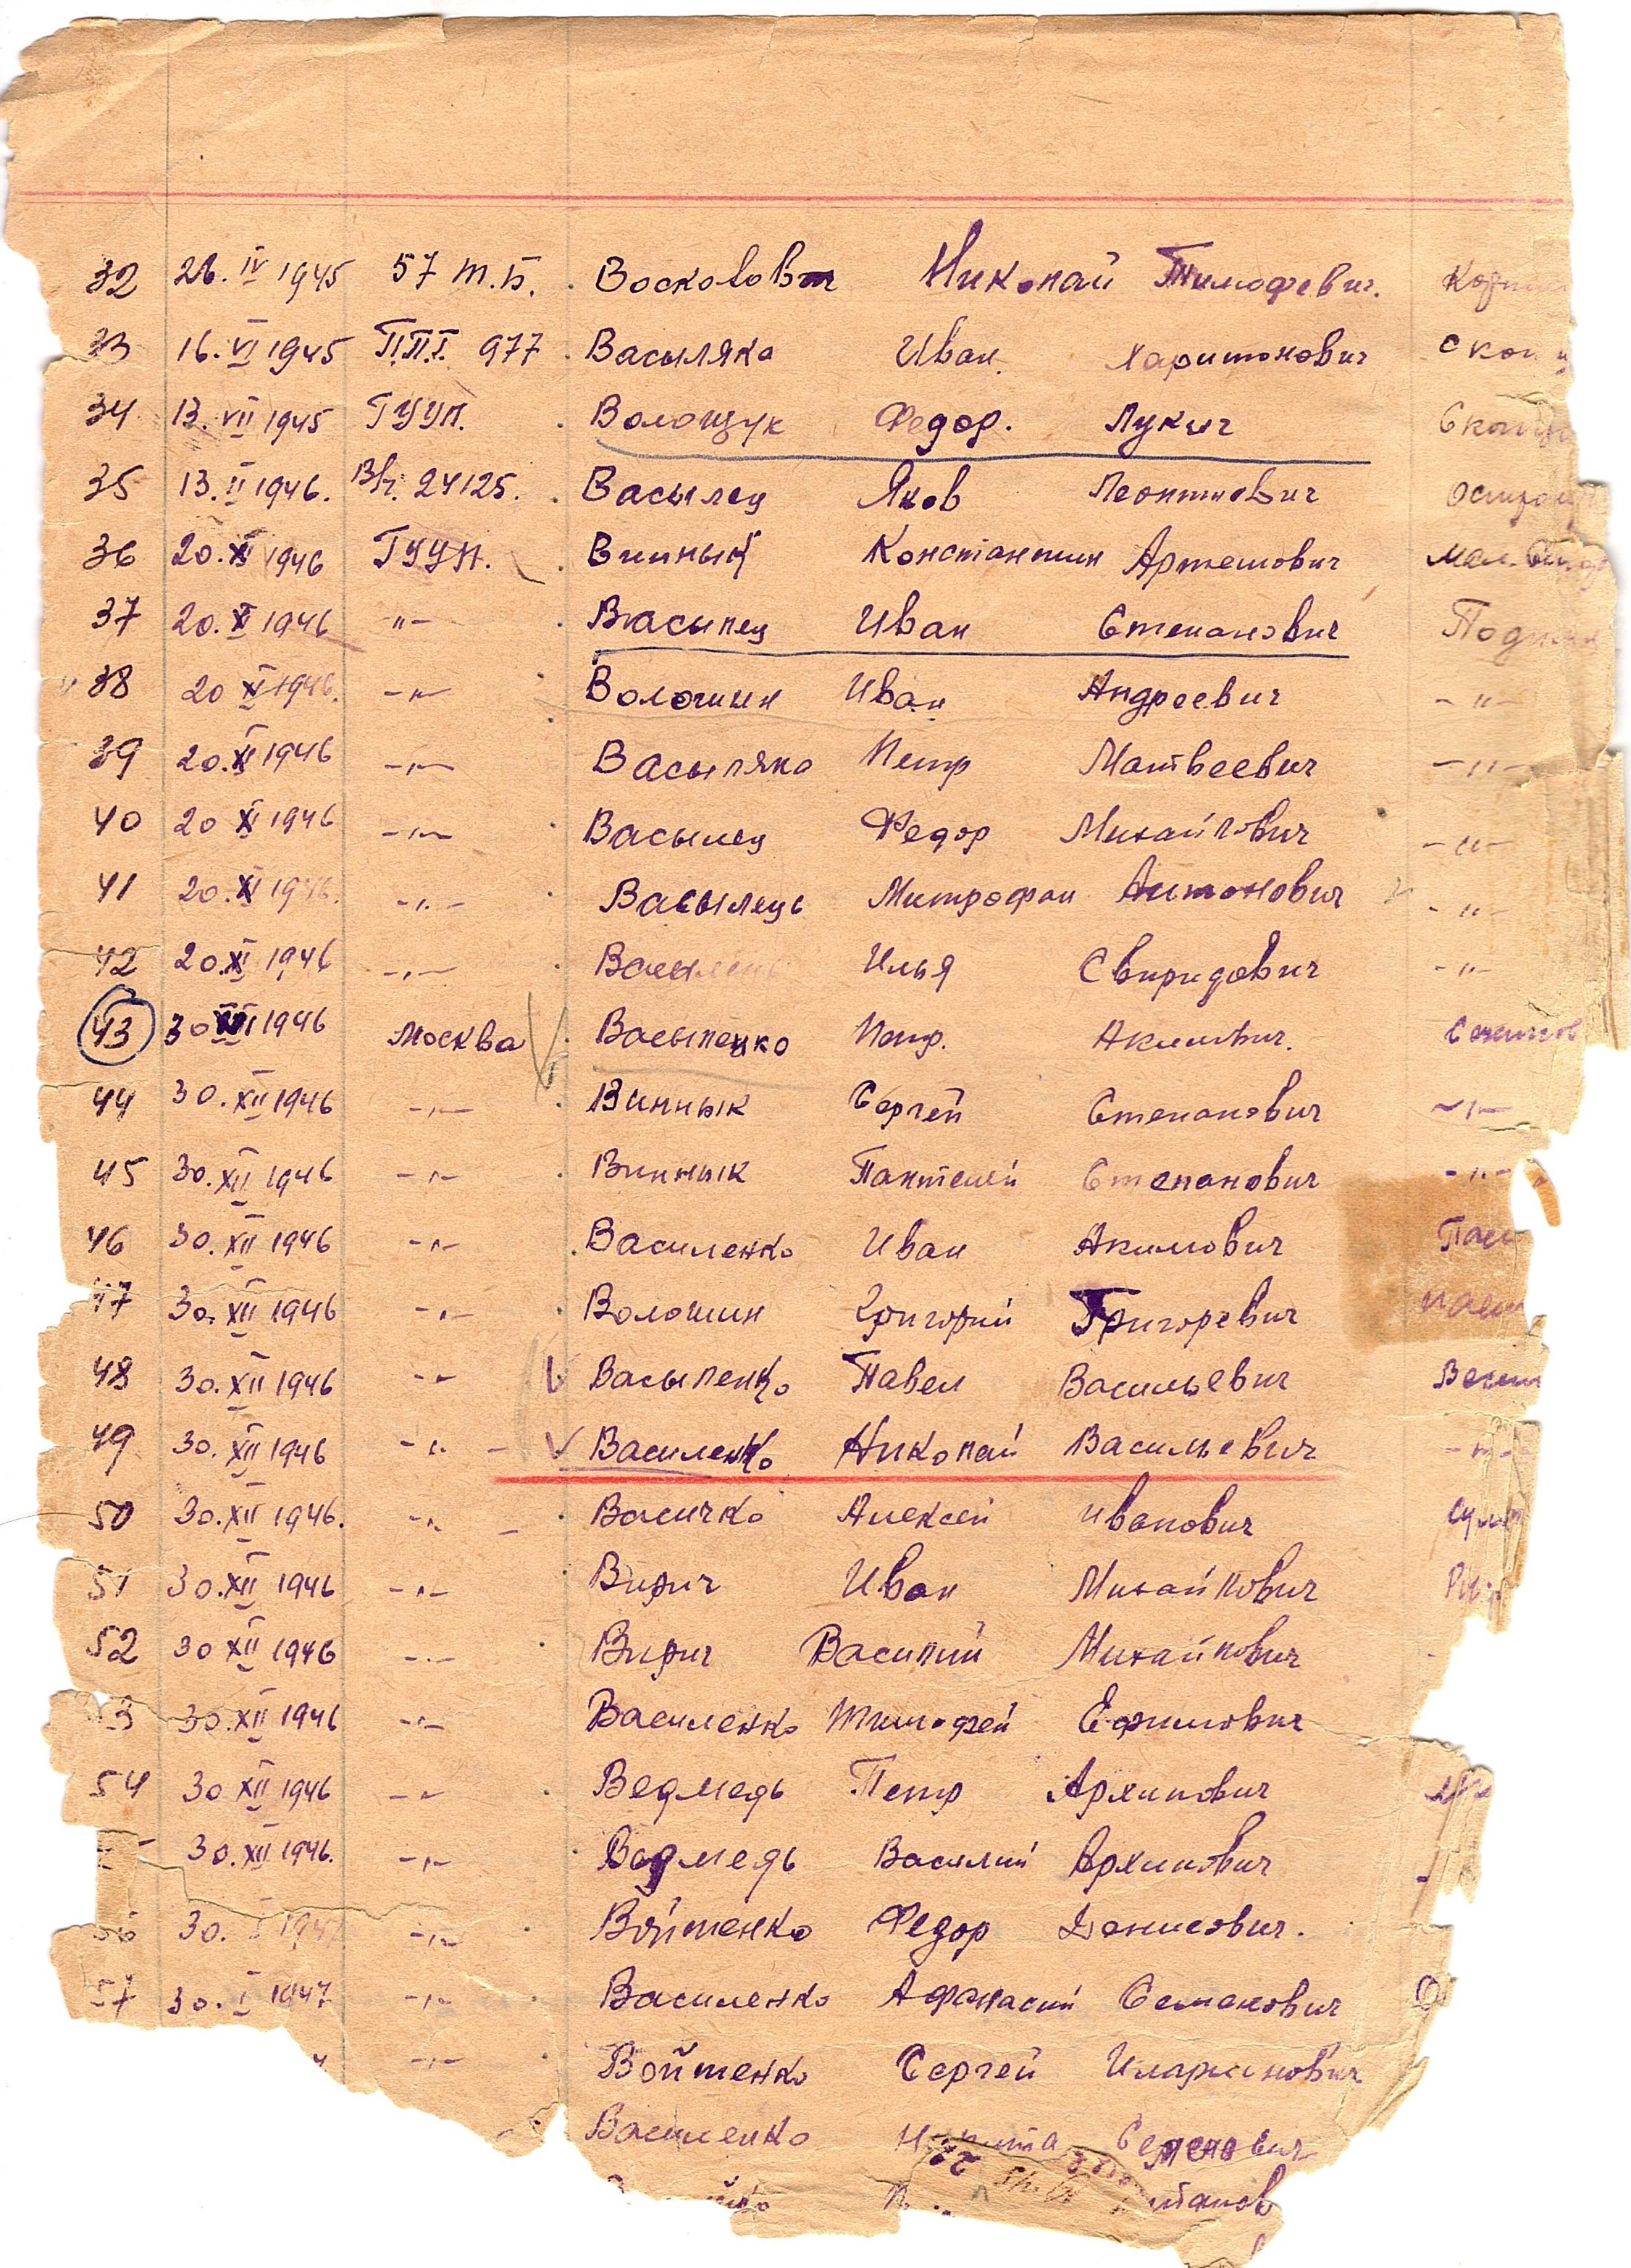 32 26. IV 1945 57 т.б. Николай Тимофевич.
33 16. VI 1945 П.П.Г. 977 Васыляко Иван. Харитонович
34 13. VII 1945 ГУУП. Волощук Федор. Лукич
35 13. II 1946. В/ч. 24125. Васылец Яков Леонтиевич
36 20. XI 1946 ГУУП. Винный Константин Артемович
37 20. X 1946 -"- Васылец Иван Степанович
38 20 XI 1946. -"- Волошин Иван Андреевич -"-
39 20. XI 1946 -"- Васыляко Петр Матвеевич -"-
40 20 XI 1946 -"- Васылец Федор Михайлович -"-
41 20. XI 1946. -"- Васылець Митрофан Антонович -"-
42 20. XI 1946 -"- Илья Свиридович -"-
43 30 1946 Москва Васыленко Петр. Акимович.
44 30. XII 1946 -"- Виннык Сергей Степанович -"-
45 30. XII 1946 -"- Виннык Пантелей Степанович -"-
46 30. XII 1946 -"- Василенко Иван Акимович
47 30. XII 1946 -"- Волошин Григорий Григоревич
48 30. XII 1946 -"- Васыленко Павел Васильевич
49 30. XII 1946 -"- Василенко Николай Васильевич -"-
50 30. XII 1946. -"- Васичко Алексей Иванович
51 30. XII 1946 -"- Вирич Иван Михайлович
52 30 XII 1946 -"- Вирич Василий Михайлович
3 30. XII 1946 -"- Василенко Тимофей Ефимович
54 30 XII 1946 -"- Ведмедь Петр Архипович
30. XII 1946. -"- Ведмедь Василий Архипович
30. -"- Войтенко Федор Денисович.
57 30. I 1947 -"- Василенко Афанасий Семенович
-"- Войтенко Сергей Иларионович
Василенко Семенович